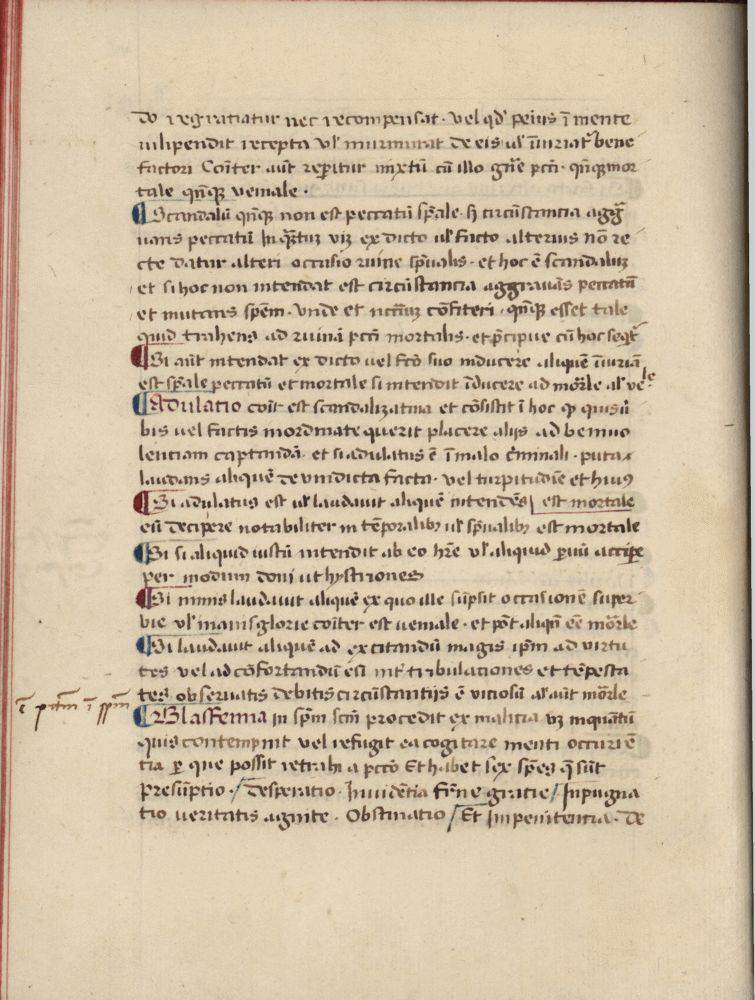 do regratiatur nec recompensat · vel qd' peius ī mente
vilipendit recepta vl' murmurat de eis ul' īiuriat' bene
factori Coīter aūt reperitur mixtū cū illo gn̄e pctī · qn̄qꝫ mor
tale qn̄qꝫ veniale ·
¶ Scandalū qn̄qꝫ non est peccatū sp̄ale · sꝫ circūstancia aggͣ
uans peccatū Inqͣꝫtuꝫ viꝫ ex dicto ul' facto alterius nō re
cte datur alteri occasio ruine sp̄ualis · et hoc ē scandaluꝫ
et si hoc non intendat est circūstancia aggrauās peccatū
et mutans spēm · vnde et nccīuꝫ cōfiteri · qn̄qꝫ esset tale
quid trahens ad ruinā pctī mortalis · et p̄cipue cū hoc seqt'
¶ Si aūt intendat ex dicto uel fcō suo inducere aliquē
est sp̄ale peccatū et mortale si intendit īducere ad mōrle al' ve le
¶ Adulatio coīt' est scandalizatiua et cōsistit ī hoc ꝙ quis ū
bis uel factis inordinate querit placere alijs ad beniuo
lentiam captandā · et si adulatus ē ī malo c̄minali · puta
laudans aliquē de vindicta facta · vel turpitudīe et huiꝰ
¶ Si adulatus est ul' laudauit aliquē intendēs | est mortale
eū decipere notabiliter in tēporalibꝫ ul' sp̄ualibꝫ est mortale
¶ Si si aliquid iustū intendit ab eo hr̄e vl' aliquid ꝑuū accipe
per modum doni ut hystriones
¶ Si nimis laudauit aliquē ex quo ille sūpsit occasionē super
bie vl' inanis glorie coīter est ueniale · et pōt aliqn̄ eē mōrle
¶ Si laudauit aliquē ad excitandū magis ip̄m ad virtu
tes vel ad cōfortandū eū int' tribulationes et tēpesta
tes obseruatis debitis circūstantijs ē viciosū al' aūt mōrle
¶ Blasfemia in sp̄m scm̄ procedit ex malicia vꝫ inquātū
quis contempnit vel refugit ea cogitare menti occurrē
tia ꝑ que possit retrahi a pctō Et habet sex spēs q̄ sūt
Presūptio · / Desperatio · Inuidētia fr̄ne gratie / Inpugna
tio ueritatis agnite · Obstinatio / Et Inpenitentia · De